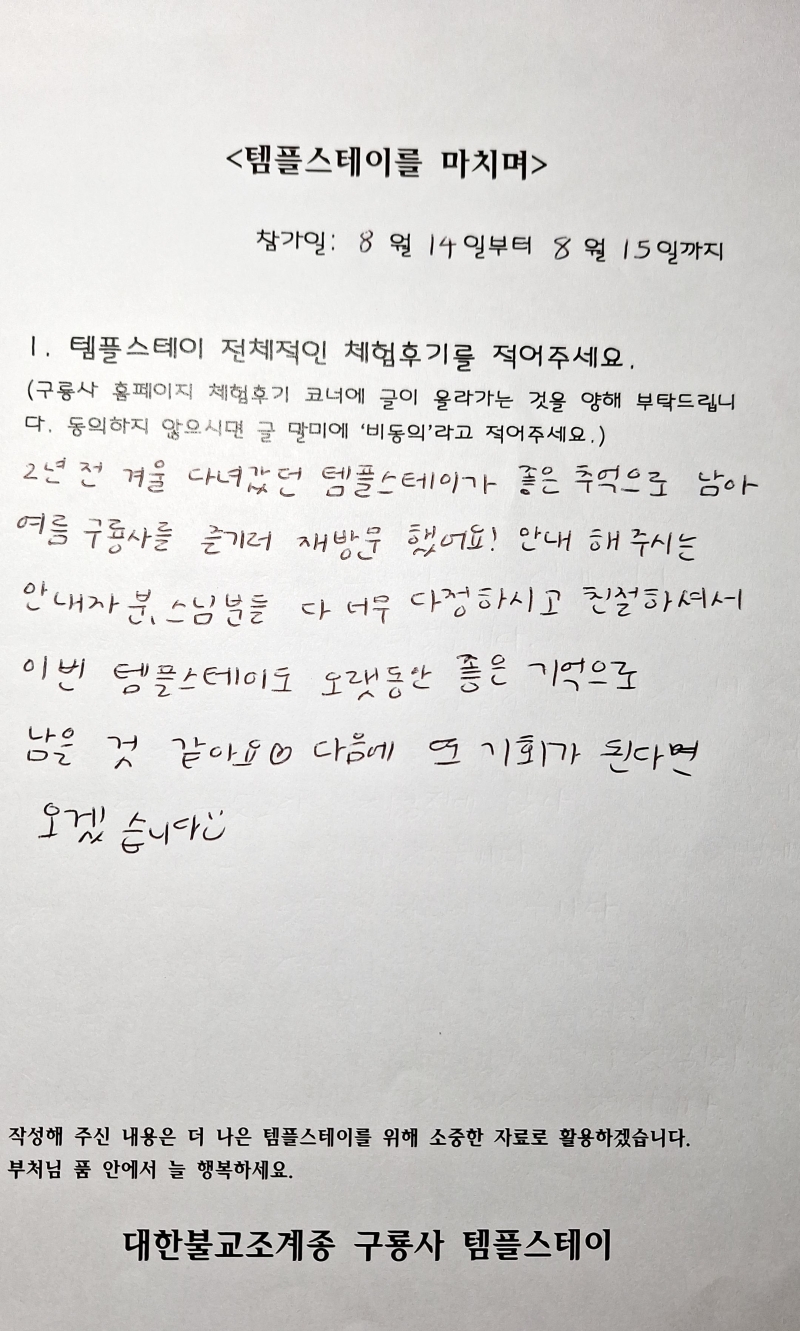 <템플스테이를 마치며>
참가일: 8 월 14일부터 8 월 15일까지
1. 템플스테이 전체적인 체험후기를 적어주세요.
(구룡사 홈페이지 체험후기 코너에 글이 올라가는 것을 양해 부탁드립니
다. 동의하지 않으시면 글 말미에 '비동의'라고 적어주세요.)
2년 전 겨울 다녀갔던 템플스테이가 좋은 추억으로 남아
여름 구룡사를 즐기러 재방문 했어요! 안내 해 주시는
안내자 분, 스님 분들 다 너무 다정하시고 친절하셔서
이번 템플스테이도 오랫동안 좋은 기억으로
남을 것 같아요 다음에 또 기회가 된다면
오겠습니다
작성해 주신 내용은 더 나은 템플스테이를 위해 소중한 자료로 활용하겠습니다.
부처님 품 안에서 늘 행복하세요.
대한불교조계종 구룡사 템플스테이